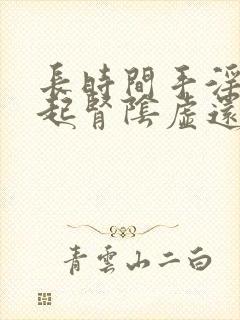 長時間手淫
起腎陰虛還
青雲山二白